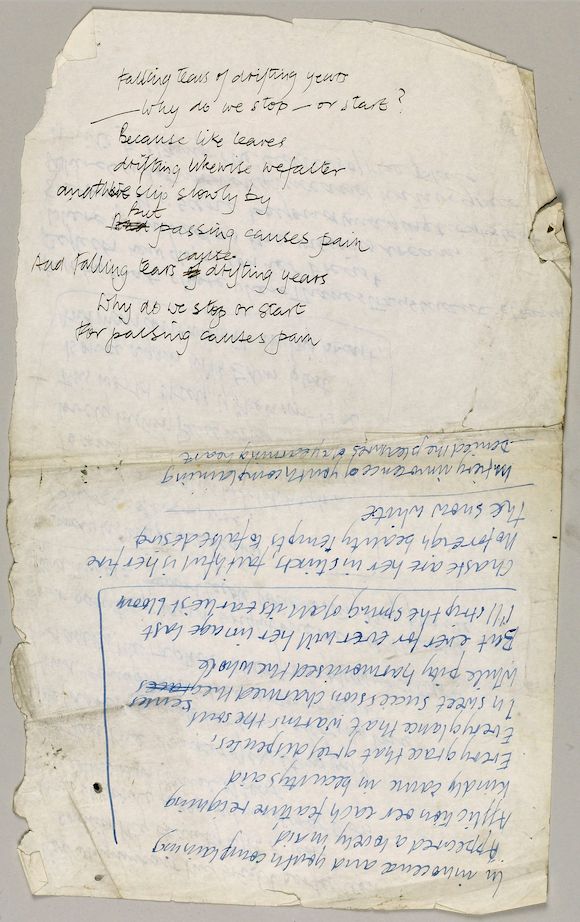 Falling tears of drifting years
— Why do we stop — or start?
Because like leaves
drifting likewise we falter
and slip slowly by
But
passing causes pain
cause
And falling tears of drifting years
Why do we stop or start
For passing causes pain
In innocence and youth complaining
Appeared a lovely maid
Affliction oer each feature reigning
Kindly came in beautys aid
Every grace that grief dispenses,
Every glance that warms the soul
In sweet succession charmed the
senses
While pity harmonised the whole
But ever for ever will her image last
I'll strip the spring of all its earliest bloom
Chaste are her instincts, faithful is her fire
No foreign beauty tempts to false desire
The snow white
innocence of youth complaining
Denied the pleasures of a yearning heart